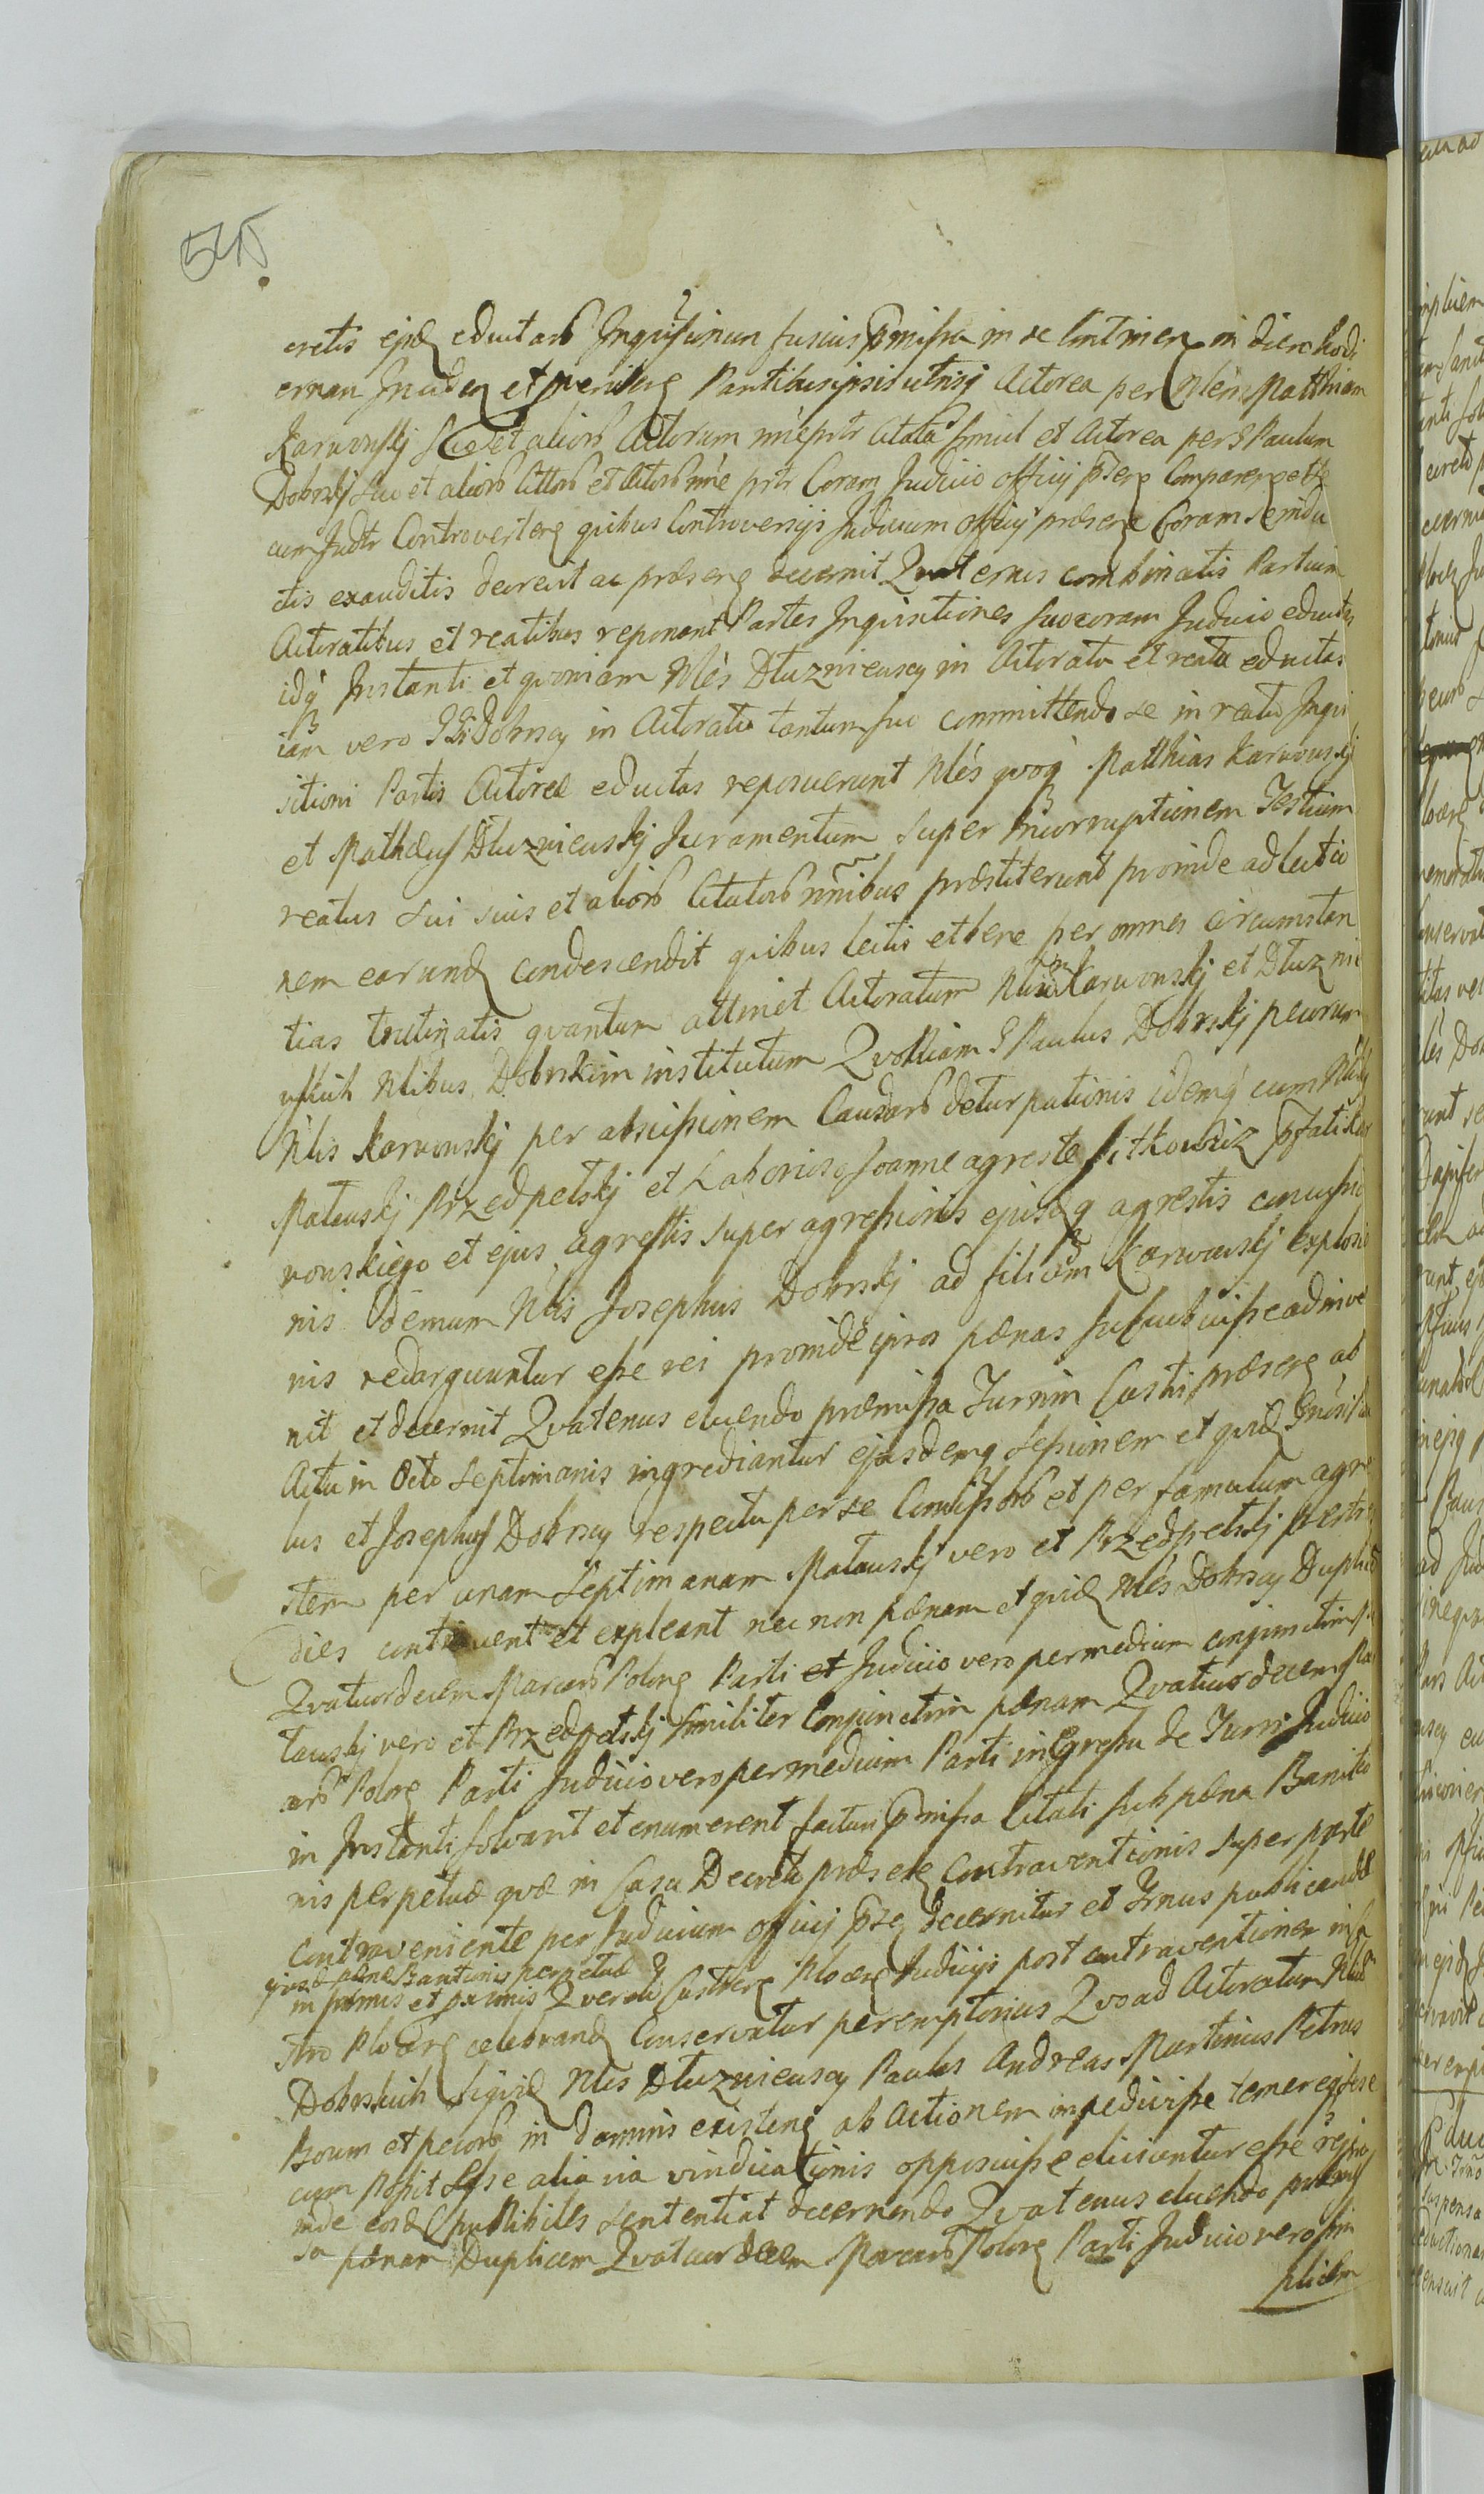 545
cretis ejusd eductarb Inquisitionum fusius pmissa in se Continen in diem hodi
ernam Inciden et pvenien Partibus ipsis utrisq Actorea per Nlem Matthiam
Karwowskj Suo et aliorb Actorum nne prtr Citata Simul et Actorea per G Paulum
Dobrskj Suo et aliorb Cittorb et Actorb nne prtr Coram Judicio officij psen Comparen et
cum Judtr Controverten quibus Controversijs Judicium officij præsens Coram se indu
ctis exauditis decrevit ac præsens decernit Quatenus combinatis Partium
Actoratibus et reatibus reponant Partes Inquisitiones suas coram Judicio eductas
idq Instanti et quoniam Nles Dluzniewscy in Actoratu et reatu eductas
iam vero GG Dobrscy in Actoratu tantum suo committendo se in reatu Inqui
sitioni Partis Actoreæ eductas reposuerunt Nles quoq Matthias Karwowskj
et Mathæus Dluzniewskj Juramentum super Incorruptionem Testium
reatus sui suis et aliorb Citatorb nnibus præstiterunt proinde ad lectio
nem earund condescendit quibus lectis et bene per omnes circumstan
tias trutinatis quantum attinet Actoratum Nlium Karwowskj et Dluznie
wskich Nlibus Dobrskim institutum Quoniam G Paulus Dobrskj pecorum
Nlis Karwowskj per abscissionem Caudarb deturpationis idemq cum Nlibus
Matowskj Przedpelskj et Laborioso Joanne agreste Sitkowicz pfati Kar
wowskiego et ejus agrestis super agressionis ejusdq agrestis concussio
nis demum Nlis Josephus Dobrskj ad filium Karwowskj explosio
nis redarguuntur esse rei proinde ipsos pænas succubuisse adinve
nit et decernit Quatenus eluendo præmissa Turrim Castri præsens ab
Actu in Octo Septimanis ingrediantur ejusdemq Sessionem et quid
lus et Josephus Dobrscy respectu per se Comissorb et per famulum agre
stem per unam Septimanam Matowskj vero et Przedpelskj per tres
dies continuent et expleant nec non pænam et quid Nles Dobrscy Duplicem
Quatuordecem Marcarb Polon Parti et Judicio vero per medium conjunctim Ma
towskj vero et Przedpelskj similiter Conjunctim pænam Quatuordecem Mar
carb Polon Parti Judicio vero per medium Parti in Egressu de Turri Judicio
in Instanti solvant et enumerent factum pmissa Citati sub pæna Banitio
nis perpetuæ quæ in Casu Decreto præsen Contraventionis super parte
contraveniente per Judicium officij psen decernitur et Trnus publicandæ
ejusd pænæ Banitionis perpetuæ
in primis et pximis Querelis Castren Plocen Judicijs post contraventionem in Ca
stro Plocen celebrand Conservatur peremptorius Quo ad Actoratum Nlium
Dobrskich Siquid Nles Dluzniewscy Paulus Andreas Martinus Petrus
Boum et pecorb in damnis existen ab Actionem impedivisse temereq se se
cum possit sese alia via vindicationis opposuisse eliciuntur esse rei pro
inde eosd punibiles sententiat decernendo Quatenus eluendo præmis
sa pænam Duplicem Quatuordecem Marcarb Polon Parti Judicio vero sim
plicem